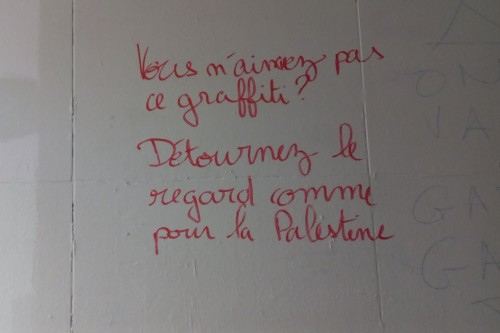 Vous n'aimez pas
ce graffiti?
Détournez le
regard comme
pour la Palestine